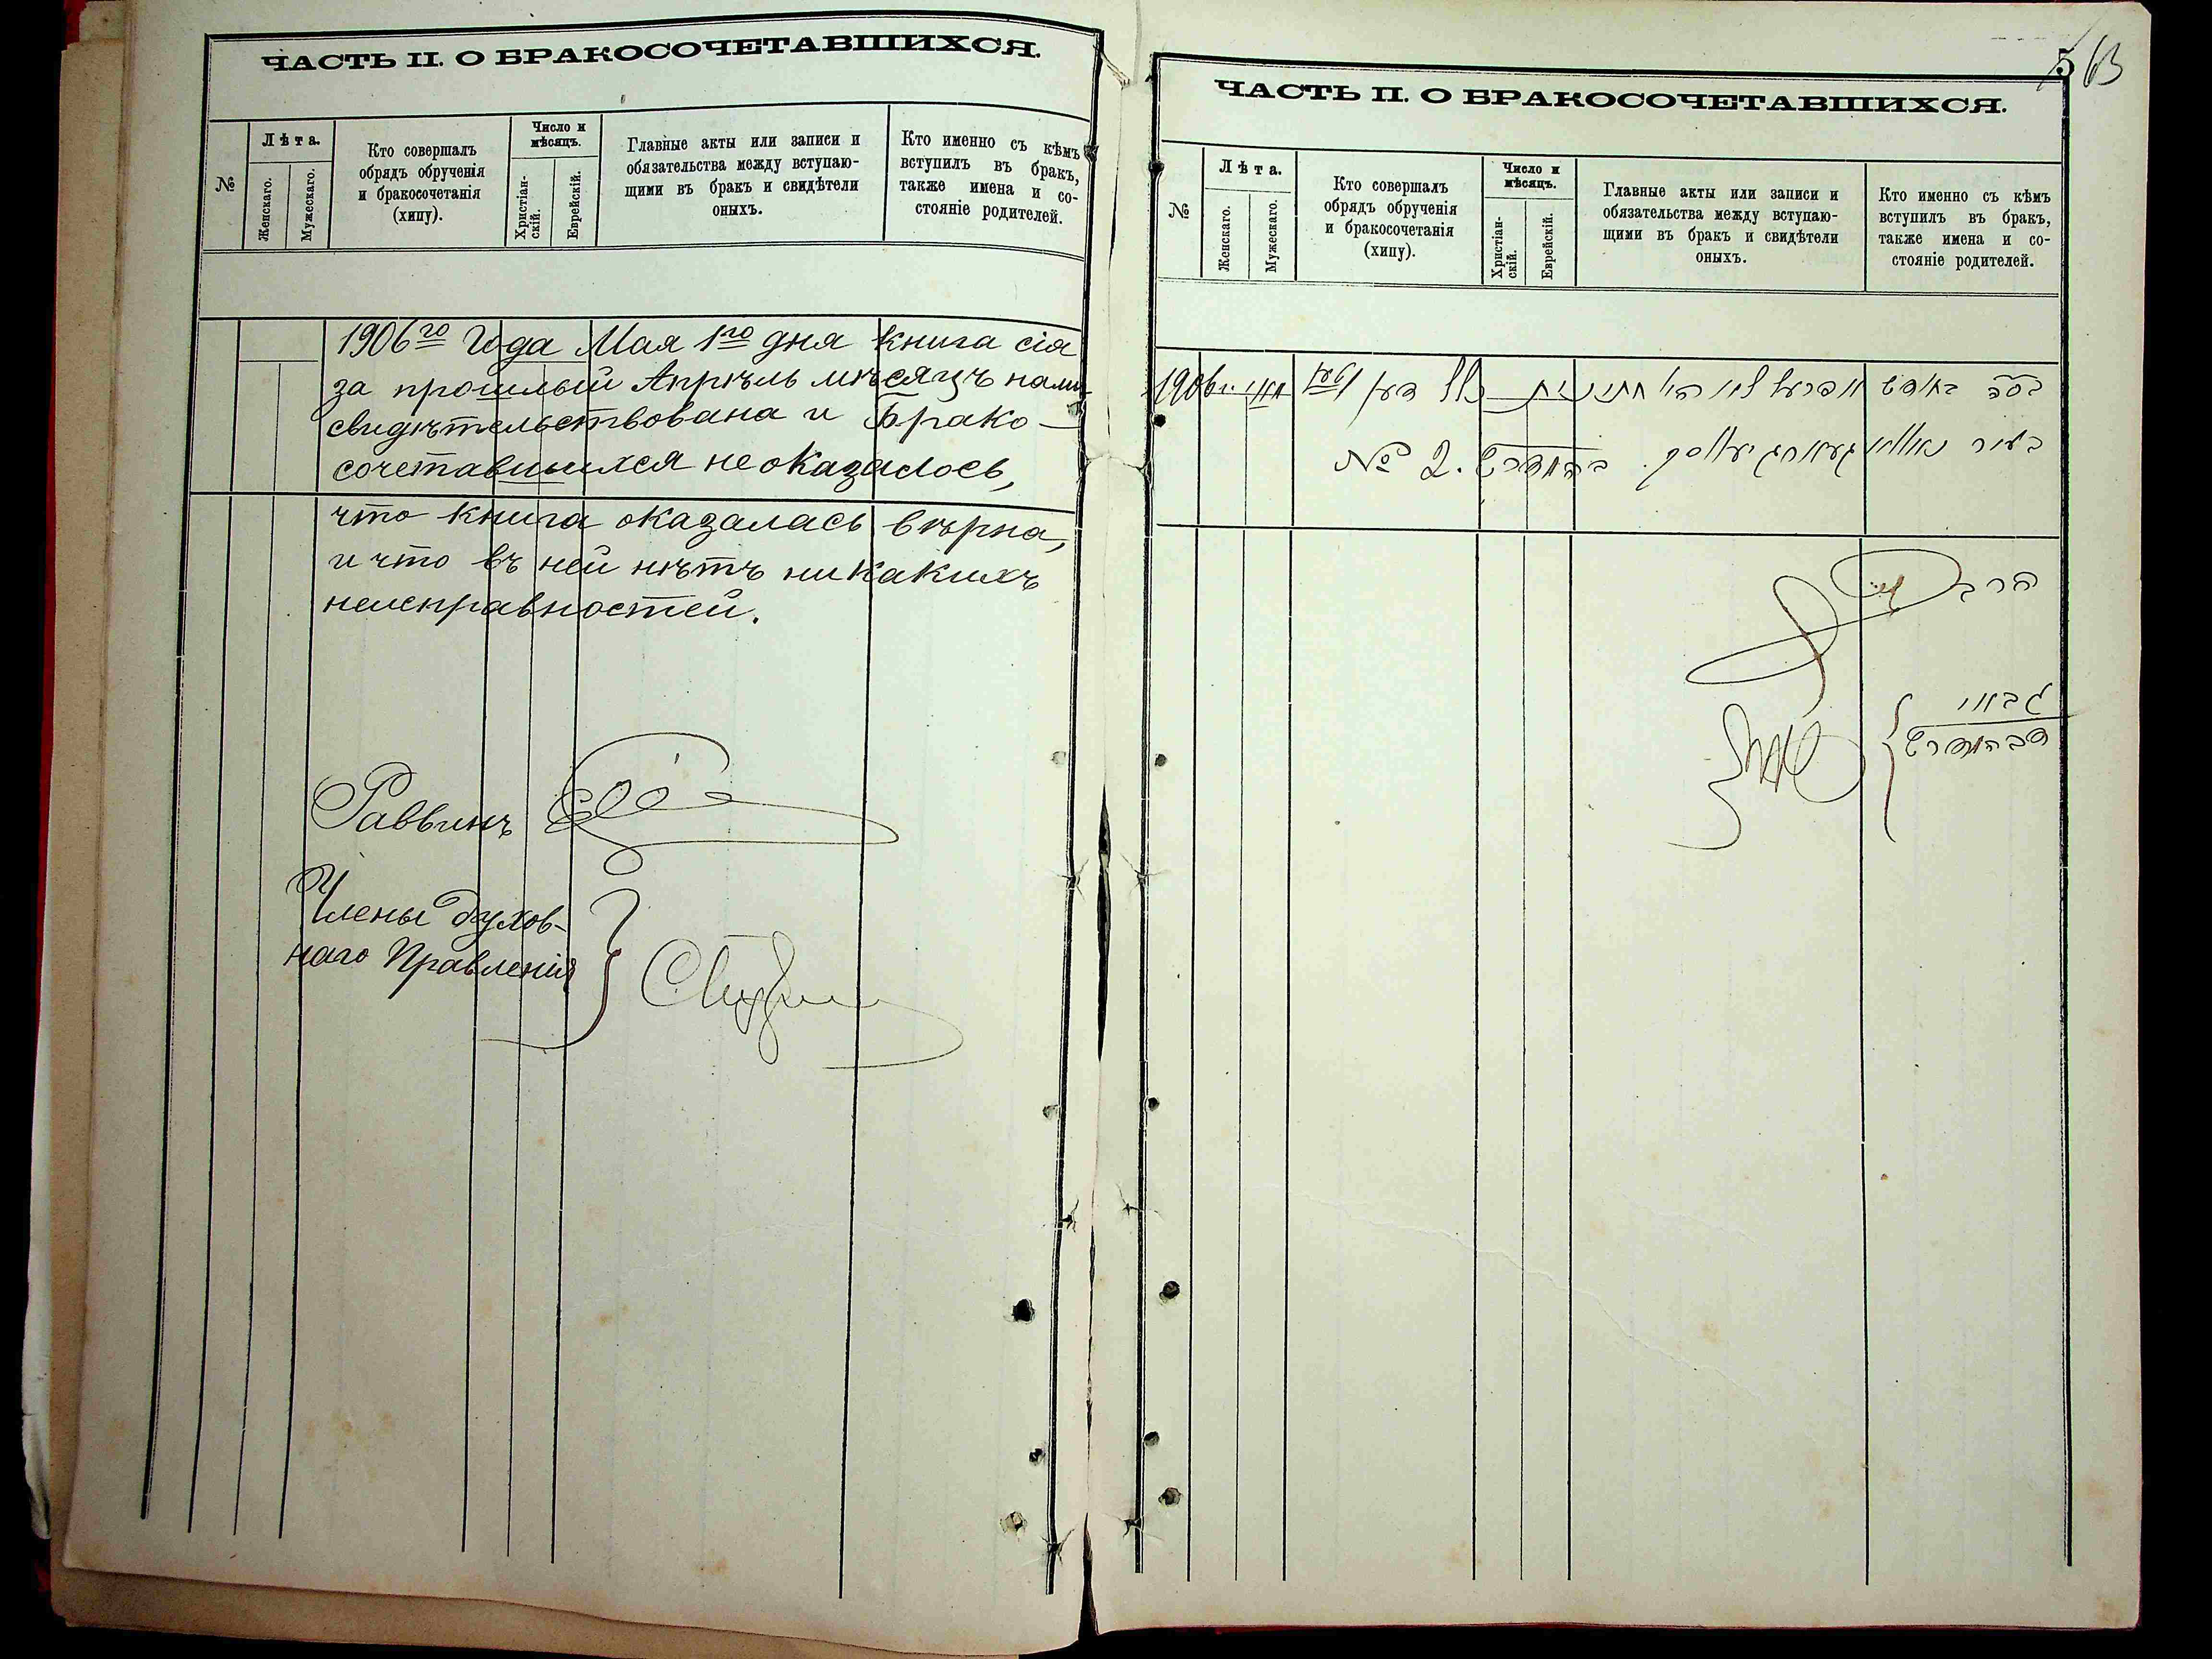 ЧАСТЬ II. О БРАКОСОЧЕТАВШИХСЯ.
№
Лѣта.
Женскаго.
Мужескаго.
Кто совершалъ
обрядъ обрученія
и бракосочетанія
(хипу).
Число и
мѣсяцъ.
Христіан-
скій.
Еврейскій.
Главные акты или записи и
обязательства между вступаю-
щими въ бракъ и свидѣтели
оныхъ.
Кто именно съ кѣмъ
вступилъ въ бракъ,
также имена и со-
стояніе родителей.
1906го Года Мая 1го дня книга сія
за прошлый Апрѣль мѣсяцъ нами
свидѣтельствована и Брако-
сочетавшихся не оказалось,
что книга оказалась вѣрна,
и что въ ней нѣтъ никакихъ
неисправностей.
Раввинъ
Члены духов-
наго Правленія
5 63
ЧАСТЬ II. О БРАКОСОЧЕТАВШИХСЯ.
№
Лѣта.
Женскаго.
Мужескаго.
Кто совершалъ
обрядъ обрученія
и бракосочетанія
(хипу).
Число и
мѣсяцъ.
Христіан-
скій.
Еврейскій.
Главные акты или записи и
обязательства между вступаю-
щими въ бракъ и свидѣтели
оныхъ.
Кто именно съ кѣмъ
вступилъ въ бракъ,
также имена и со-
стояніе родителей.
בחדש אפריל לא היו 1 מאי 1906
בעיר № 2.
הרב
גבאי
דבהמדרש